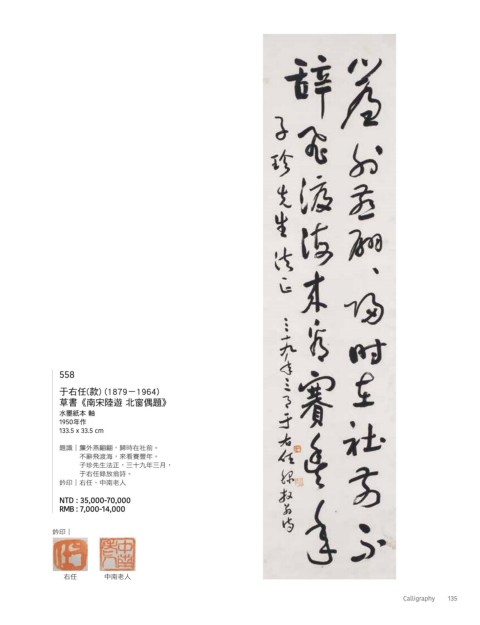 簾外燕翩翩、歸時在社前不
辭飛渡海來看賽豐年
子珍先生法正
三十九年三月于右任錄放翁詩
558
于右任(款) (1879－1964)
草書《南宋陸遊 北窗偶題》
水墨紙本 軸
1950年作
133.5 x 33.5 cm
題識｜簾外燕翩翩，歸時在社前。
不辭飛渡海，來看賽豐年。
子珍先生法正，三十九年三月，
于右任錄放翁詩。
鈐印｜右任、中南老人
NTD : 35,000-70,000
RMB : 7,000-14,000
鈐印｜
右任
中南老人
Calligraphy 135